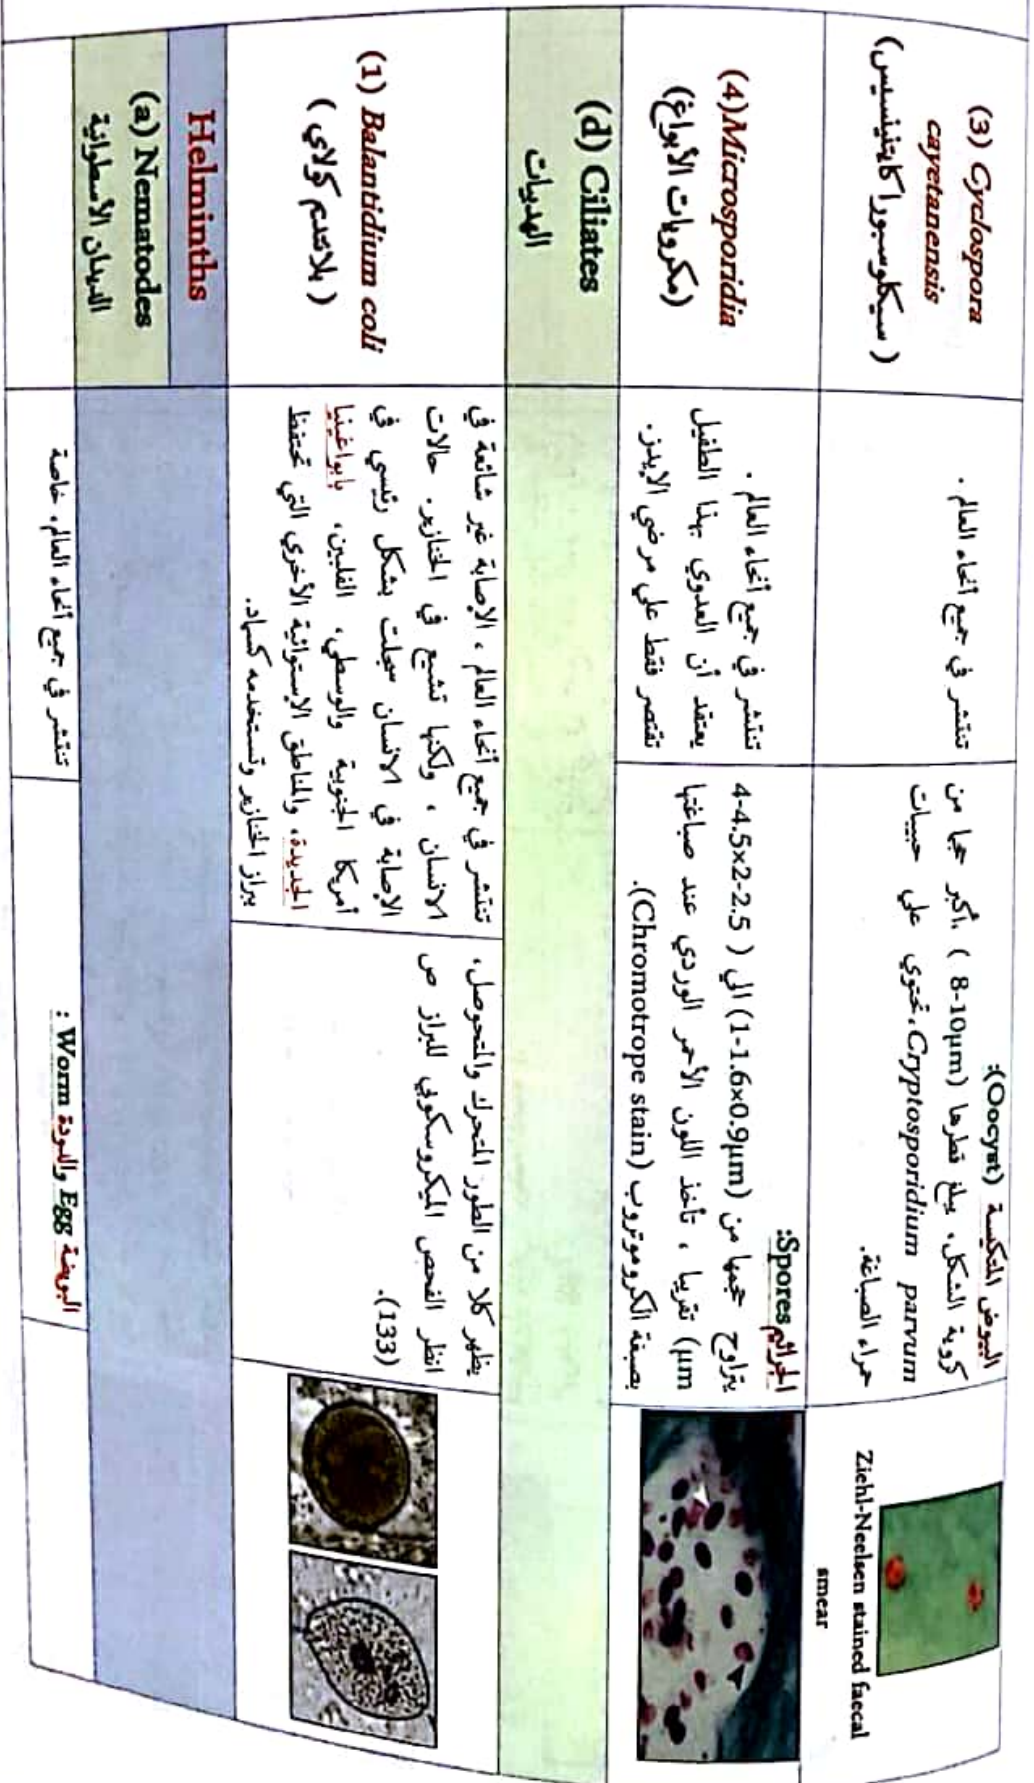 (3) Cyclospora
cayetanensis
(سيكلوسبورا كايتنينسيس)
تنتشر في جميع أنحاء العالم .
البيوض المتكيسة (Oocyst):
كروية الشكل، يبلغ قطرها (8-10µm) ،أكبر حجما من
Cryptosporidium parvum، تحتوي على حبيبات
حمراء الصباغة.
Ziehl-Neelsen stained faecal
smear
(4)Microsporidia
(مكرويات الأبواغ)
تنتشر في جميع أنحاء العالم .
يعتقد أن العدوي بهذا الطفيل
تقتصر فقط علي مرضي الايدز.
الجراثيم Spores:
يتراوح حجمها من (1-1.6x0.9µm) الي ( 4-4.5x2-2.5
µm) تقريبا ، تأخذ اللون الأحمر الوردي عند صباغتها
بصبغة الكروموتروب (Chromotrope stain).
(d) Ciliates
الهدبيات
(1) Balantidium coli
( بلانتدم كولاي )
تنتشر في جميع أنحاء العالم ، الإصابة غير شائعة في
الانسان ، ولكنها تشيع في الخنازير. حالات
الإصابة في الانسان سجلت بشكل رئيسي في
أمريكا الجنوبية والوسطي، الفلبين، بابواغينيا
الجديدة، والمناطق الإستوائية الأخري التي تحتفظ
ببراز الخنازير وتستخدمه كسماد.
يظهر كلا من الطور المتحرك والمتحوصل،
انظر الفحص الميكروسكوبي للبراز ص
(133).
Helminths
(a) Nematodes
الديدان الأسطوانية
تنتشر في جميع أنحاء العالم، خاصة
البويضة Egg والدودة Worm :